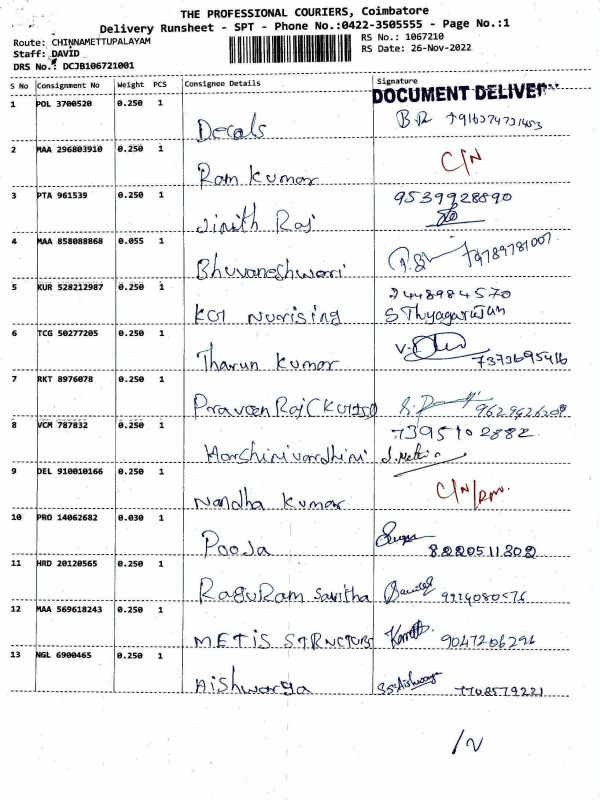 THE PROFESSIONAL COURIERS, Coimbatore
Delivery Runsheet - SPT - Phone No.:0422-3505555 - Page No.:1
Route: CHINNAMETTUPALAYAM
Staff: DAVID
DRS No.: DCJB106721001
RS No.: 1067210
RS Date: 26-Nov-2022
S No Consignment No Weight PCS Consignee Details Signature
DOCUMENT DELIVERY
1 POL 3700520 0.250 1
Decals
2 MAA 296803910 0.250 1 C/N
Ram kumar
3 PTA 961539 0.250 1 9539928890
Jinith Raj
4 MAA 858088868 0.055 1 9789781007
Bhuvaneshwari
5 KUR 528212987 0.250 1 9448984570
KGI Nursising S Thyagarajan
6 TCG 50277205 0.250 1
Tharun Kumar 7373695416
7 RKT 8976078 0.250 1
Praveen Raj 9629626208
8 VCM 787832 0.250 1 7395102882
Harshinivardhini
9 DEL 910010166 0.250 1 C/N
Nandha Kumar
10 PRO 14062682 0.030 1
Pooja 8220511302
11 HRD 20120565 0.250 1
RaguRam Savitha
12 MAA 569618243 0.250 1
METIS STRUCTURS 9047206296
13 NGL 6900465 0.250 1
Aishwarya Aishwarya 7708579221